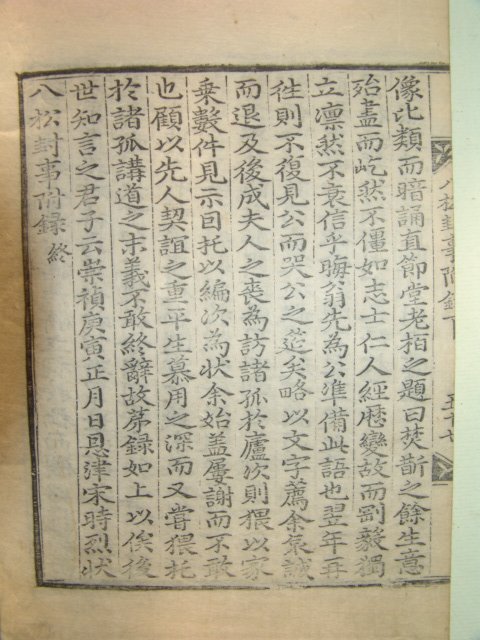 像比類而暗誦直節堂老栢之題曰焚斮之餘生意
殆盡而屹然不僵如志士仁人經歷變故而剛毅獨
立凛然不衰信乎晦翁先為公準備此語也翌年再
徃則不復見公而哭公之筵矣略以文字薦余哀誠
而退及後成夫人之喪為訪諸孤於廬次則猥以家
乗數件見示囙托以編次為狀余始盖屢謝而不敢
也顧以先人契誼之重平生慕用之深而又嘗猥托
於諸孤講道之末義不敢終辭故苐録如上以俟後
世知言之君子云崇禎庚寅正月日恩津宋時烈狀
八松封事附録終
八松封事附録下